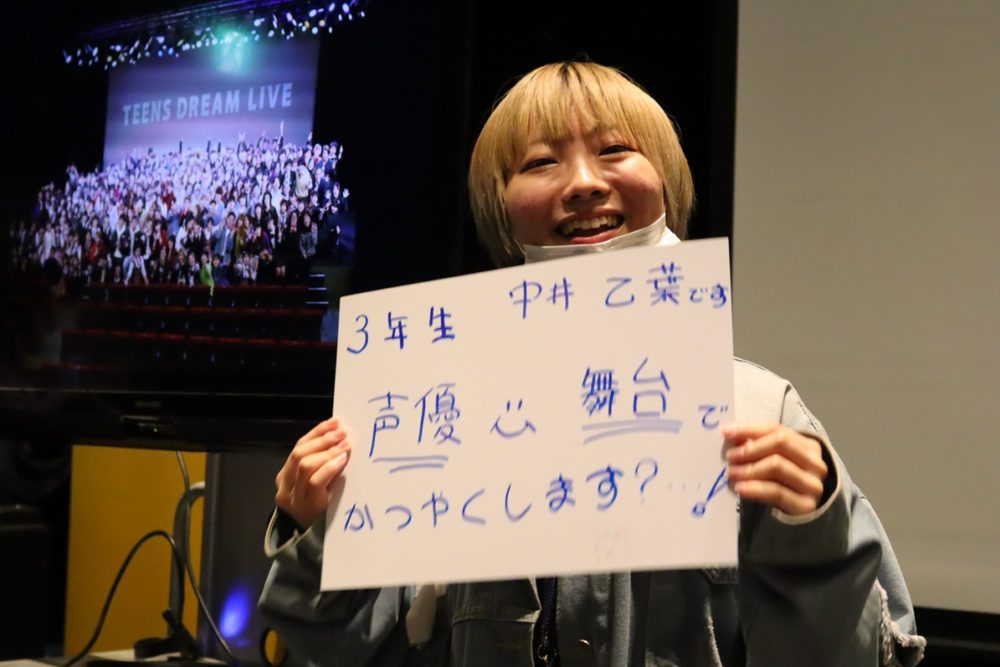 TEENS DREAM LIVE
SHARP
3年生 中井 乙葉です
声優 舞台で
かつやくします?…!